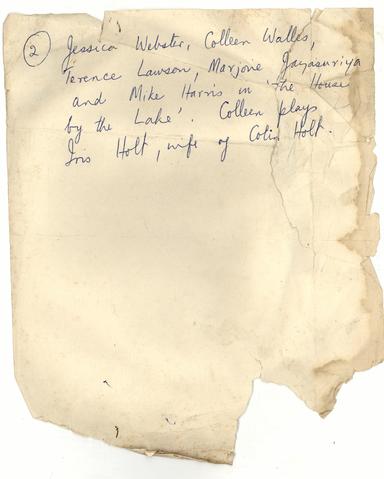 (2) Jessica Webster, Colleen Walles,
Terence Lawson, Marjorie Jayasuriya
and Mike Harris in 'the House
by the Lake'. Colleen plays
Iris Holt, wife of Colin Holt.